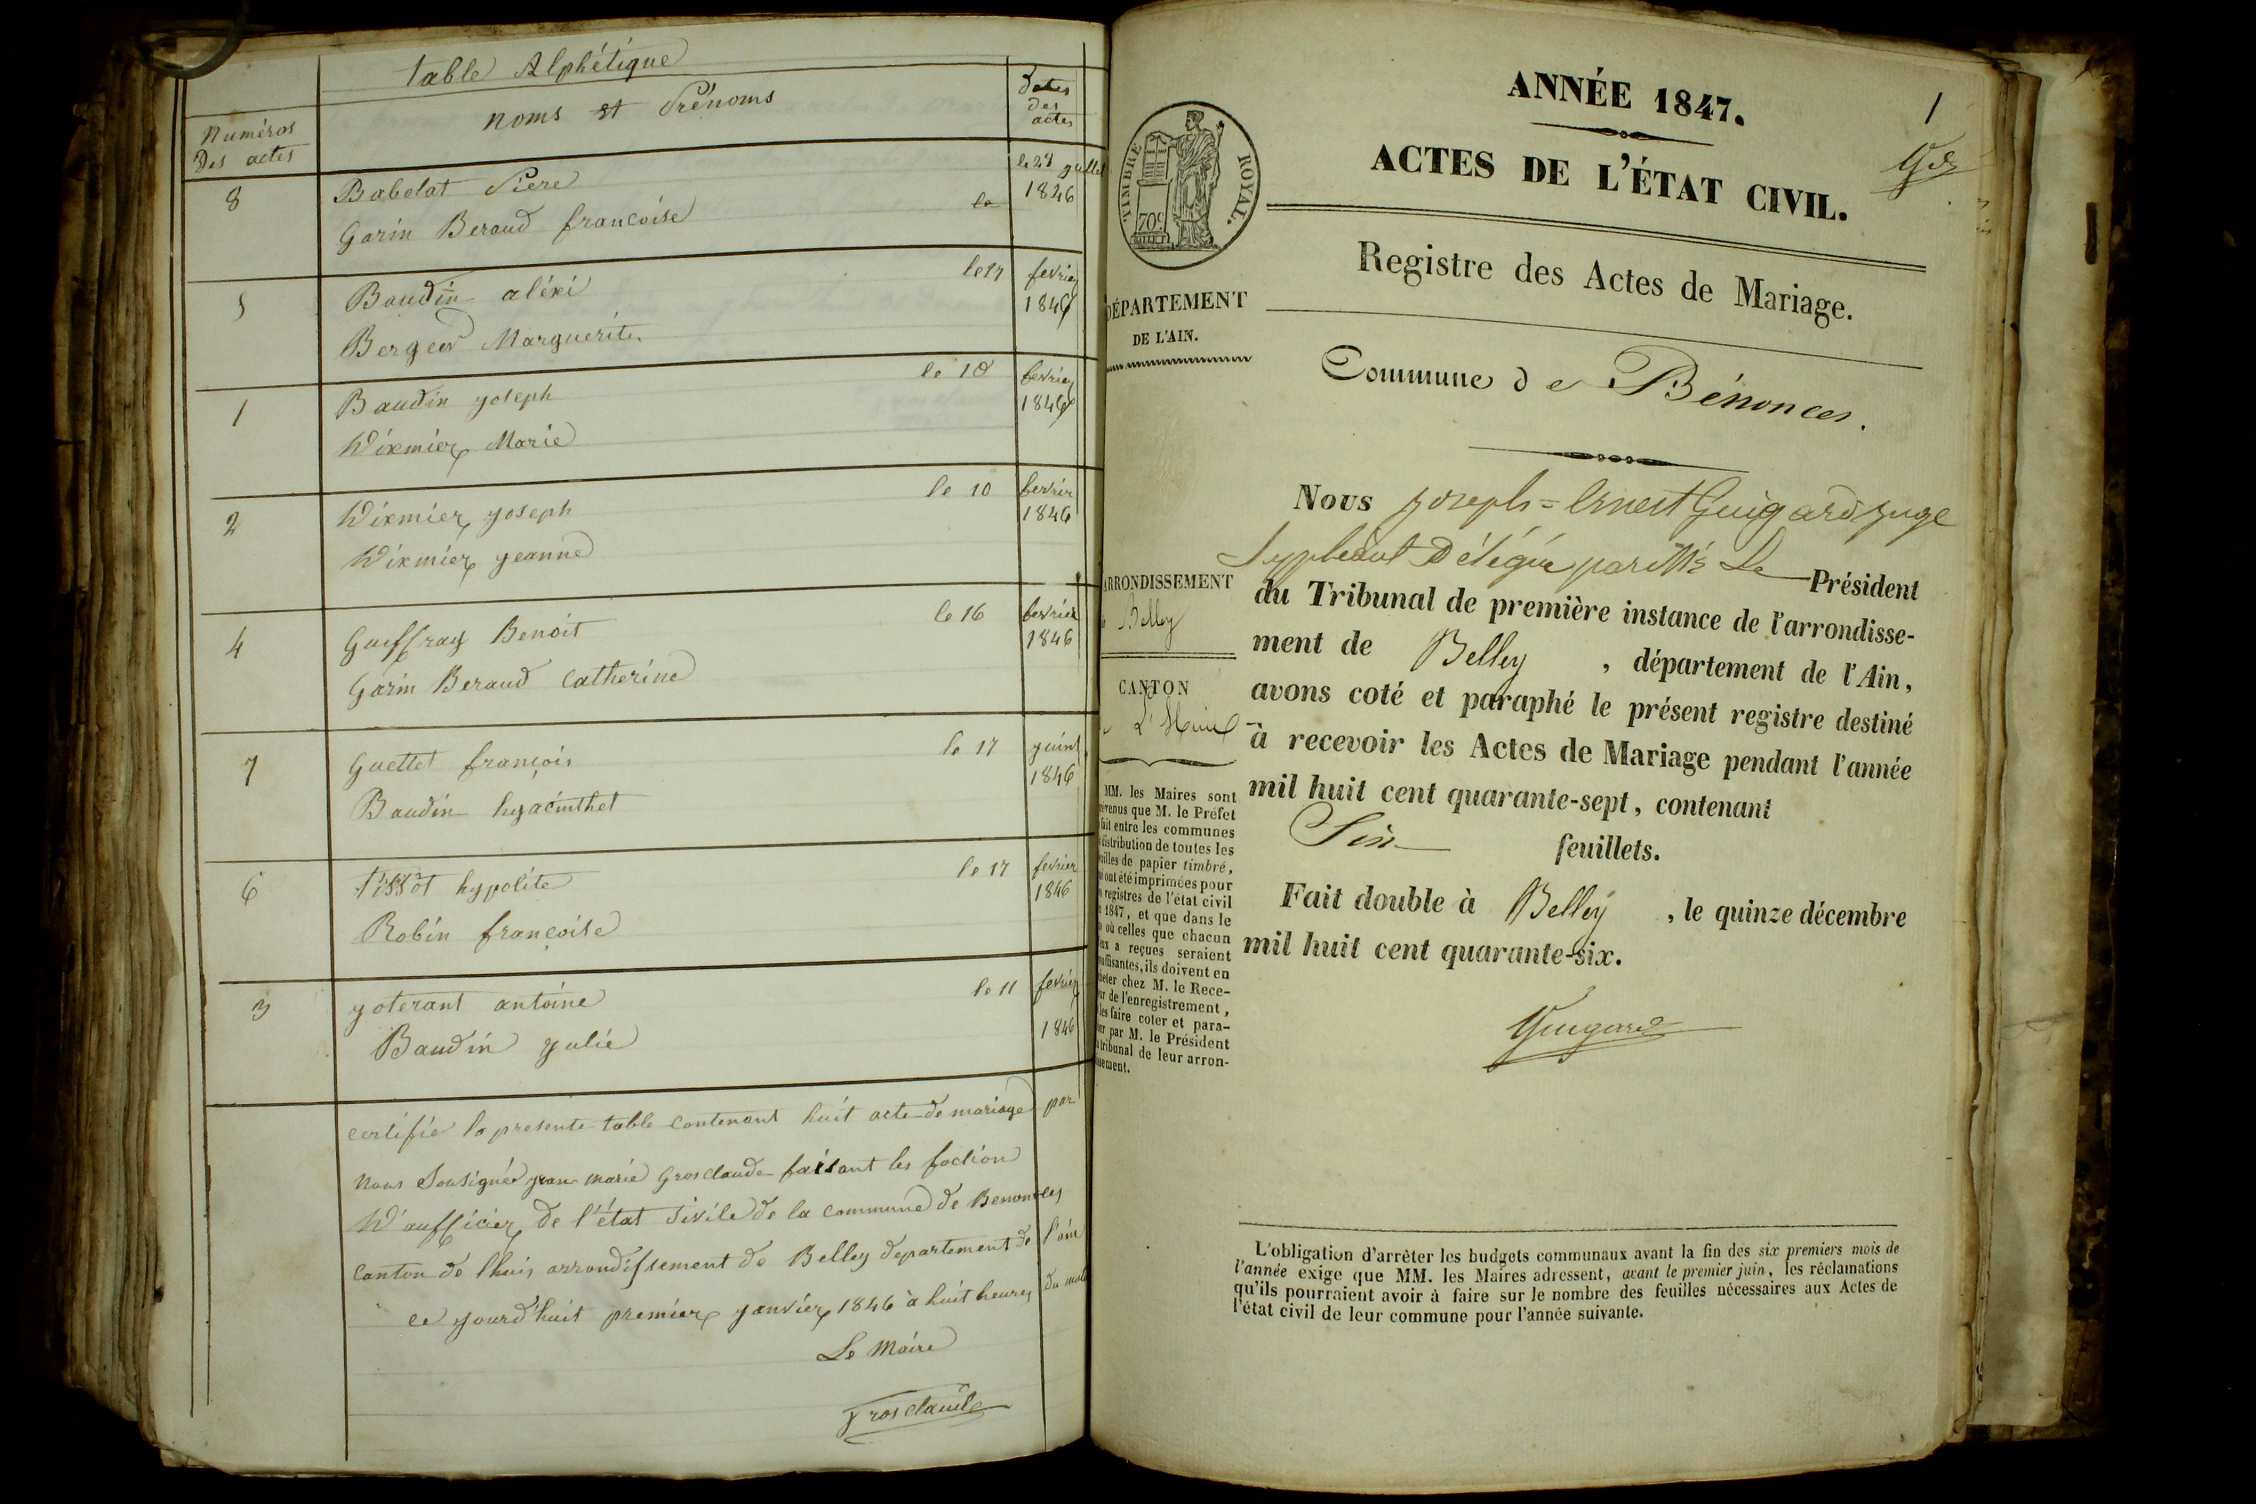 table Alphétique
Numéros
Des actes
noms et Prénoms
Dates
des
actes
8
Babolat Piere
Garin Beraud francoise
le 27 juillet
1846
5
Baudin aléxi
Berger Marguerite
le 17 fevrier
1846
1
Baudin joseph
Dixmier Marie
le 10 fevrier
1846
2
Dixmier joseph
Dixmier jeanne
le 10 fevrier
1846
4
Gueffray Benoit
Garin Beraud Catherine
le 16 fevrier
1846
7
Guettet françois
Baudin hyacinthet
le 17 juint
1846
6
tissot hypolite
Robin françoise
le 17 fevrier
1846
3
joterant antoine
Baudin julie
le 11 fevrier
1846
certifie la presente table contenant huit acte de mariage par
nous Sousigné jean marie Grosclaude faisant les foction
D'aufficier de l'état sivile de la commune de Benonces
canton de lhuis arrondissement de Belley departement de l'ain
ce jourd'huit premier janvier 1846 à huit heures du
Le Maire
Grosclaude
1
ANNÉE 1847.
ACTES DE L'ÉTAT CIVIL.
TIMBRE ROYAL.
70c
Registre des Actes de Mariage.
DÉPARTEMENT
DE L'AIN.
Commune de Bénonces.
Nous joseph=Ernest Guigard juge
Suppléant Délégué par Mr Le Président
du Tribunal de première instance de l'arrondisse-
ment de Belley, département de l'Ain,
avons coté et paraphé le présent registre destiné
à recevoir les Actes de Mariage pendant l'année
mil huit cent quarante-sept, contenant
Six feuillets.
Fait double à Belley, le quinze décembre
mil huit cent quarante-six.
Guigard
ARRONDISSEMENT
Belley
CANTON
L'Huis
MM. les Maires sont
évenus que M. le Préfet
fait entre les communes
distribution de toutes les
uilles de papier timbré,
ont été imprimées pour
registres de l'état civil
1847, et que dans le
où celles que chacun
eux a reçues seraient
uffisantes, ils doivent en
heter chez M. le Rece-
ur de l'enregistrement,
les faire coter et para-
er par M. le Président
tribunal de leur arron-
sement.
L'obligation d'arrêter les budgets communaux avant la fin des six premiers mois de
l'année exige que MM. les Maires adressent, avant le premier juin, les réclamations
qu'ils pourraient avoir à faire sur le nombre des feuilles nécessaires aux Actes de
l'état civil de leur commune pour l'année suivante.